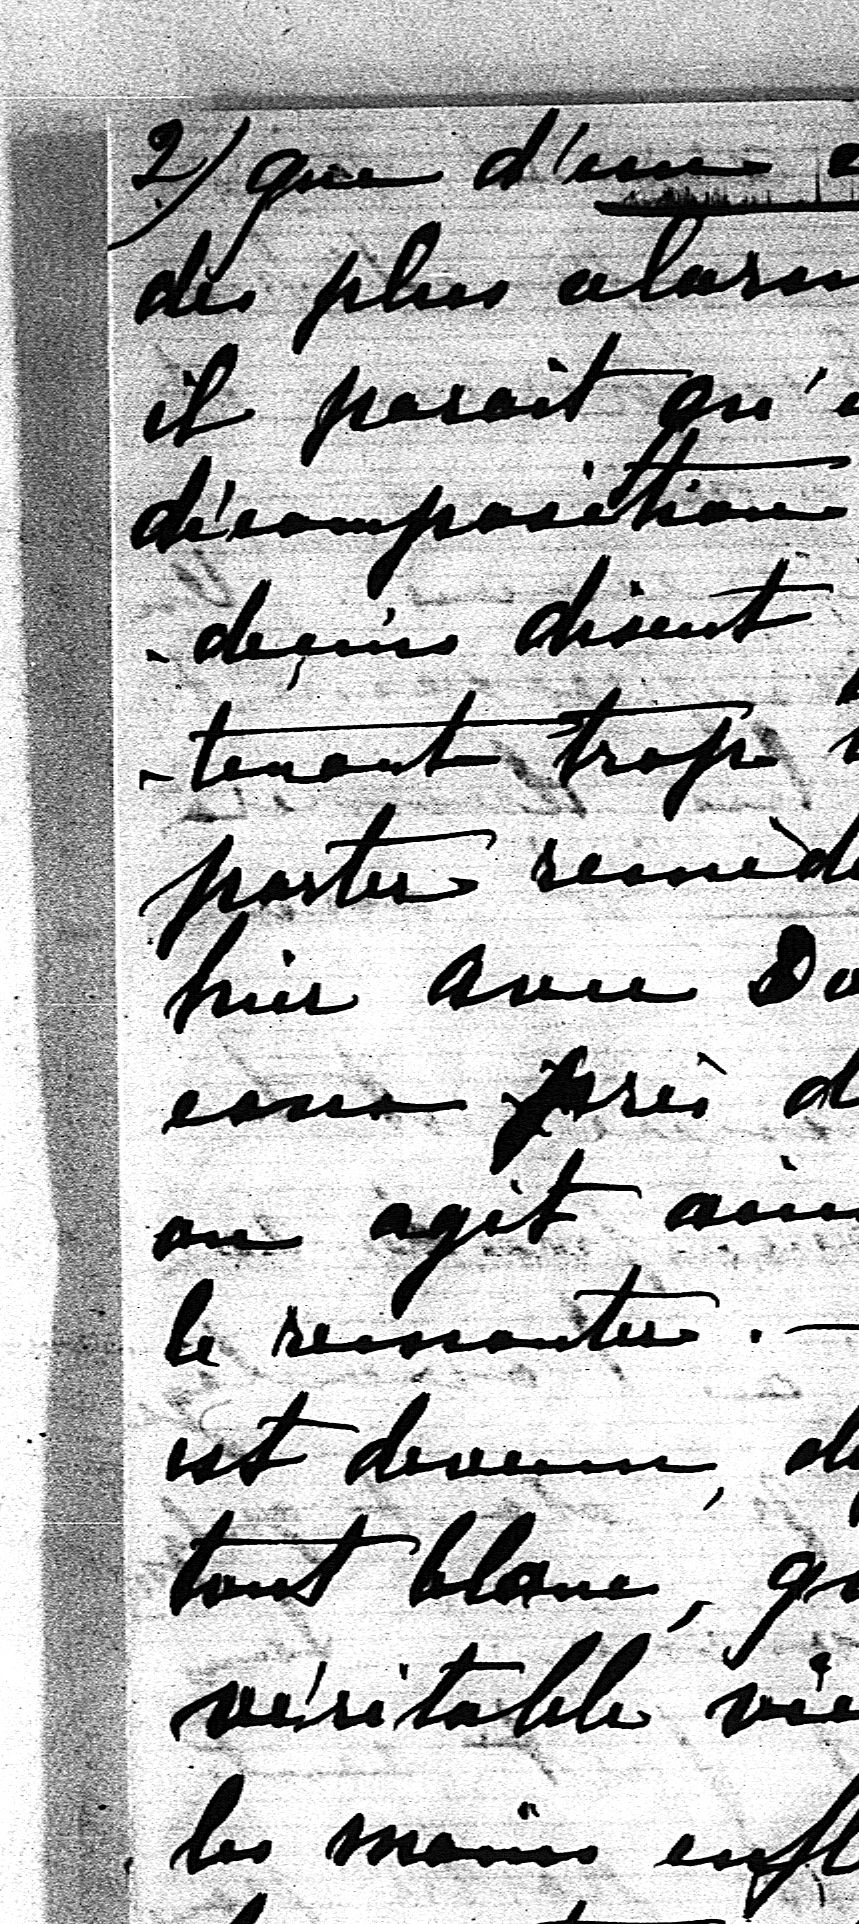 2) que d'une
des plus alarm
il parait qu'
décomposition
-decins disent
-tenant trop
porter remède
hier avec Do
cono près d
on agit ain
le remonter. —
est devenu, de
tout blanc, qu
véritable vie
les mains enfl